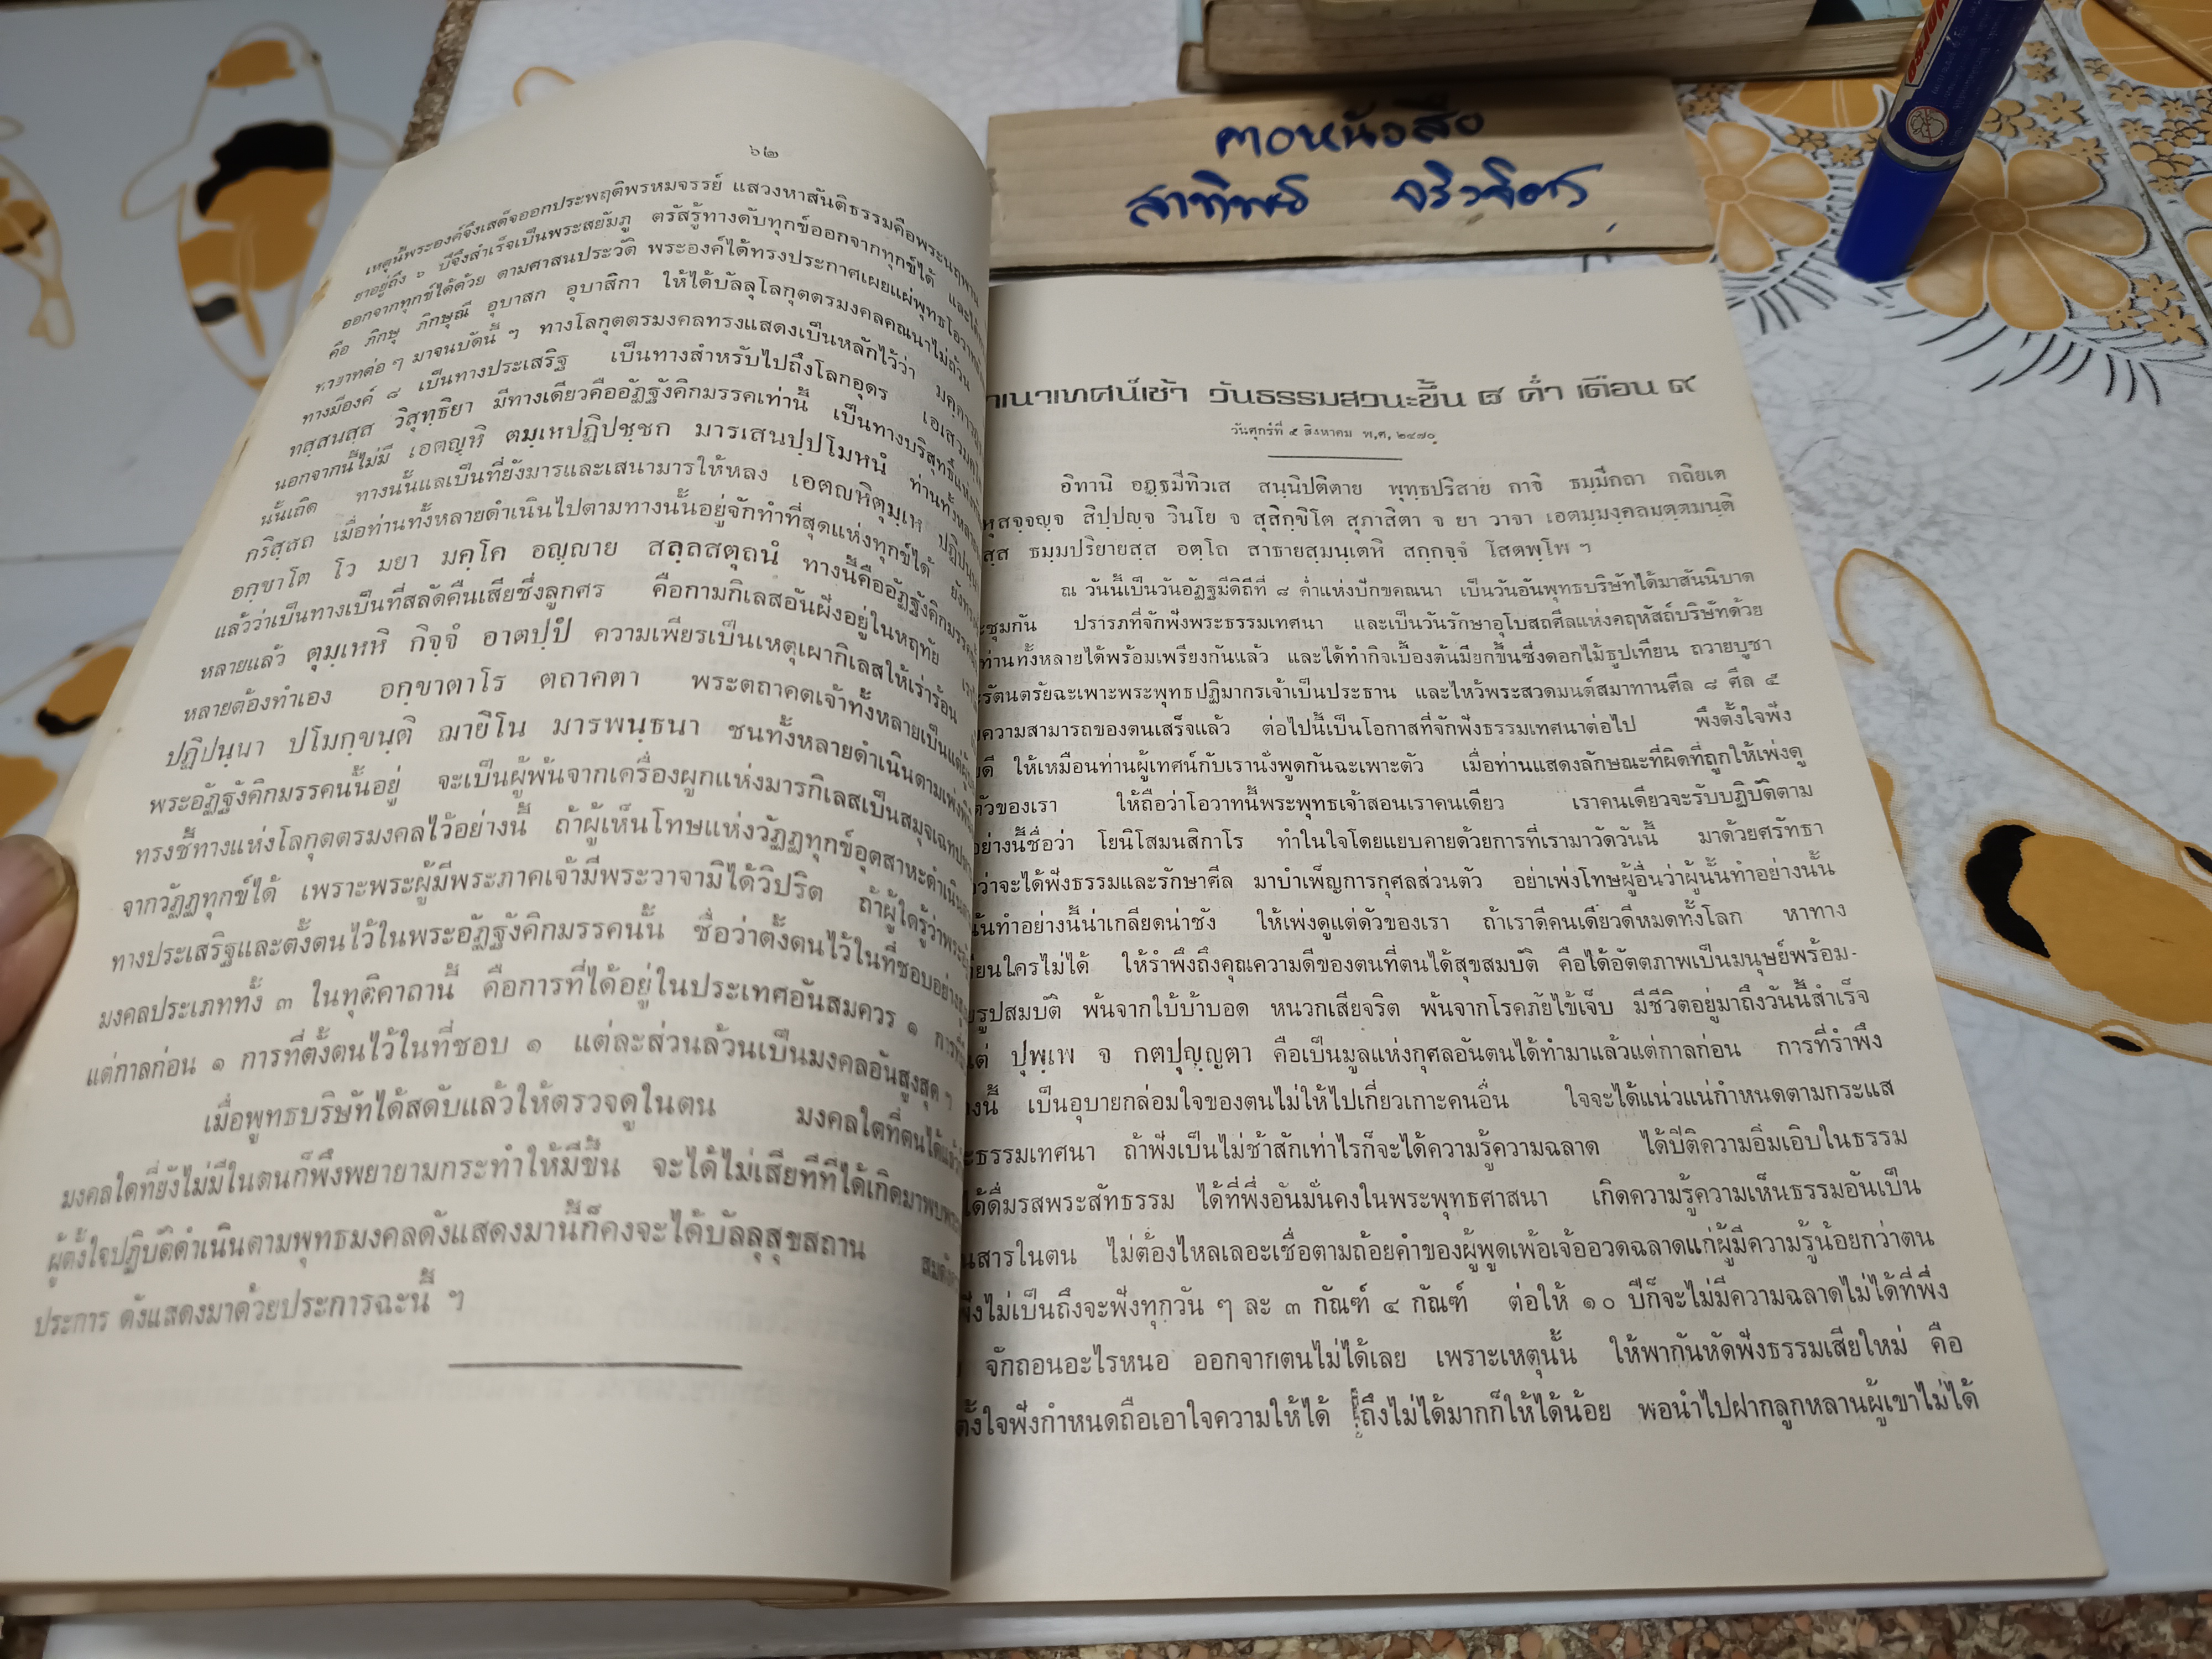 ๖๒
เหตุนี้พระองค์จึงเสด็จออกประพฤติพรหมจรรย์ แสวงหาสันติธรรมคือพระนฤพาน
ยาอยู่ถึง ๖ ปีจึงสำเร็จเป็นพระสยัมภู ตรัสรู้ทางดับทุกข์ออกจากทุกข์ได้ และได้
ออกจากทุกข์ได้ด้วย ตามศาสนประวัติ พระองค์ได้ทรงประกาศเผยแผ่พุทธโอวาท
คือ ภิกษุ ภิกษุณี อุบาสก อุบาสิกา ให้ได้บัลลุโลกุตตรมงคลคณนาไม่ถ้วน
ทายาทต่อ ๆ มาจนบัดนี้ ๆ ทางโลกุตตรมงคลทรงแสดงเป็นหลักไว้ว่า
ทางมีองค์ ๘ เป็นทางประเสริฐ เป็นทางสำหรับไปถึงโลกอุดร เอเสวมคฺโค
ทสฺสนสฺส วิสุทฺธิยา มีทางเดียวคืออัฏฐังคิกมรรคเท่านั้น เป็นทางบริสุทธิ์แห่ง
นอกจากนี้ไม่มี เอตญฺหิ ตมฺเหปฏิปชฺชก มารเสนปฺปโมหนํ ท่านทั้งหลาย
นั้นเถิด ทางนั้นแลเป็นที่ยังมารและเสนามารให้หลง เอตญหิตุมฺเห ปฏิปนฺนา
กริสฺสถ เมื่อท่านทั้งหลายดำเนินไปตามทางนั้นอยู่จักทำที่สุดแห่งทุกข์ได้
อกฺขาโต โว มยา มคฺโค อญฺญาย สลฺลสตฺถนํ ทางนี้คืออัฏฐังคิกมรรค
แล้วว่าเป็นทางเป็นที่สลัดคืนเสียซึ่งลูกศร คือกามกิเลสอันฝังอยู่ในหฤทัย
หลายแล้ว ตุมฺเหหิ กิจฺจํ อาตปฺปํ ความเพียรเป็นเหตุเผากิเลสให้เร่าร้อน
หลายต้องทำเอง อกฺขาตาโร ตถาคตา พระตถาคตเจ้าทั้งหลายเป็นแต่ผู้
ปฏิปนฺนา ปโมกฺขนฺติ ฌายิโน มารพนฺธนา ชนทั้งหลายดำเนินตามเพ่ง
พระอัฏฐังคิกมรรคนั้นอยู่ จะเป็นผู้พ้นจากเครื่องผูกแห่งมารกิเลสเป็นสมุจเฉทปหาน
ทรงชี้ทางแห่งโลกุตตรมงคลไว้อย่างนี้ ถ้าผู้เห็นโทษแห่งวัฏฏทุกข์อุตสาหะดำเนิน
จากวัฏฏทุกข์ได้ เพราะพระผู้มีพระภาคเจ้ามีพระวาจามิได้วิปริต ถ้าผู้ใดรู้ว่า
ทางประเสริฐและตั้งตนไว้ในพระอัฏฐังคิกมรรคนั้น ชื่อว่าตั้งตนไว้ในที่ชอบอย่าง
มงคลประเภททั้ง ๓ ในทุติคาถานี้ คือการที่ได้อยู่ในประเทศอันสมควร ๑
แต่กาลก่อน ๑ การที่ตั้งตนไว้ในที่ชอบ ๑ แต่ละส่วนล้วนเป็นมงคลอันสูงสุด ๆ
เมื่อพุทธบริษัทได้สดับแล้วให้ตรวจดูในตน มงคลใดที่ตนได้แล้ว
มงคลใดที่ยังไม่มีในตนก็พึงพยายามกระทำให้มีขึ้น จะได้ไม่เสียทีที่ได้เกิดมาพบ
ผู้ตั้งใจปฏิบัติดำเนินตามพุทธมงคลดังแสดงมานี้ก็คงจะได้บัลลุสุขสถาน
ประการ ดังแสดงมาด้วยประการฉะนี้ ฯ
คอหนังสือ
าเนาเทศน์เช้า วันธรรมสวนะขึ้น ๘ ค่ำ เดือน ๙
วันศุกร์ที่ ๕ สิงหาคม พ.ศ. ๒๔๗๐
อิทานิ อฏฺฐมีทิวเส สนฺนิปติตาย พุทฺธปริสาย กาจิ ธมฺมีกถา กถิยเต
หุสจฺจญฺจ สิปฺปญฺจ วินโย จ สุสิกฺขิโต สุภาสิตา จ ยา วาจา เอตมฺมงฺคลมุตฺตมนฺติ
สฺส ธมฺมปริยายสฺส อตฺโถ สาธายสฺมนฺเตหิ สกฺกจฺจํ โสตพฺโพ ฯ
ณ วันนี้เป็นวันอัฏฐมีดิถีที่ ๘ ค่ำแห่งปักขคณนา เป็นวันอันพุทธบริษัทได้มาสันนิบาต
ะชุมกัน ปรารภที่จักฟังพระธรรมเทศนา และเป็นวันรักษาอุโบสถศีลแห่งคฤหัสถ์บริษัทด้วย
ท่านทั้งหลายได้พร้อมเพรียงกันแล้ว และได้ทำกิจเบื้องต้นมียกขึ้นซึ่งดอกไม้ธูปเทียน ถวายบูชา
ะรัตนตรัยฉะเพาะพระพุทธปฏิมากรเจ้าเป็นประธาน และไหว้พระสวดมนต์สมาทานศีล ๘ ศีล ๕
มความสามารถของตนเสร็จแล้ว ต่อไปนี้เป็นโอกาสที่จักฟังธรรมเทศนาต่อไป พึงตั้งใจฟัง
ดี ให้เหมือนท่านผู้เทศน์กับเรานั่งพูดกันฉะเพาะตัว เมื่อท่านแสดงลักษณะที่ผิดที่ถูกให้เพ่งดู
ตัวของเรา ให้ถือว่าโอวาทนี้พระพุทธเจ้าสอนเราคนเดียว เราคนเดียวจะรับปฏิบัติตาม
อย่างนี้ชื่อว่า โยนิโสมนสิกาโร ทำในใจโดยแยบคายด้วยการที่เรามาวัดวันนี้ มาด้วยศรัทธา
ว่าจะได้ฟังธรรมและรักษาศีล มาบำเพ็ญการกุศลส่วนตัว อย่าเพ่งโทษผู้อื่นว่าผู้นั้นทำอย่างนั้น
นั้นทำอย่างนี้น่าเกลียดน่าชัง ให้เพ่งดูแต่ตัวของเรา ถ้าเราดีคนเดียวดีหมดทั้งโลก หาทาง
ยนใครไม่ได้ ให้รำพึงถึงคุณความดีของตนที่ตนได้สุขสมบัติ คือได้อัตตภาพเป็นมนุษย์พร้อม-
รูปสมบัติ พ้นจากใบ้บ้าบอด หนวกเสียจริต พ้นจากโรคภัยไข้เจ็บ มีชีวิตอยู่มาถึงวันนี้สำเร็จ
แต่ ปุพฺเพ จ กตปุญฺญตา คือเป็นมูลแห่งกุศลอันตนได้ทำมาแล้วแต่กาลก่อน การที่รำพึง
างนี้ เป็นอุบายกล่อมใจของตนไม่ให้ไปเกี่ยวเกาะคนอื่น ใจจะได้แน่วแน่กำหนดตามกระแส
ะธรรมเทศนา ถ้าฟังเป็นไม่ช้าสักเท่าไรก็จะได้ความรู้ความฉลาด ได้ปีติความอิ่มเอิบในธรรม
ได้ดื่มรสพระสัทธรรม ได้ที่พึ่งอันมั่นคงในพระพุทธศาสนา เกิดความรู้ความเห็นธรรมอันเป็น
นสารในตน ไม่ต้องไหลเลอะเชื่อตามถ้อยคำของผู้พูดเพ้อเจ้ออวดฉลาดแก่ผู้มีความรู้น้อยกว่าตน
ฟังไม่เป็นถึงจะฟังทุกวัน ๆ ละ ๓ กัณฑ์ ๔ กัณฑ์ ต่อให้ ๑๐ ปีก็จะไม่มีความฉลาดไม่ได้ที่พึ่ง
จักถอนอะไรหนอ ออกจากตนไม่ได้เลย เพราะเหตุนั้น ให้พากันหัดฟังธรรมเสียใหม่ คือ
ตั้งใจฟังกำหนดถือเอาใจความให้ได้ ถึงไม่ได้มากก็ให้ได้น้อย พอนำไปฝากลูกหลานผู้เขาไม่ได้